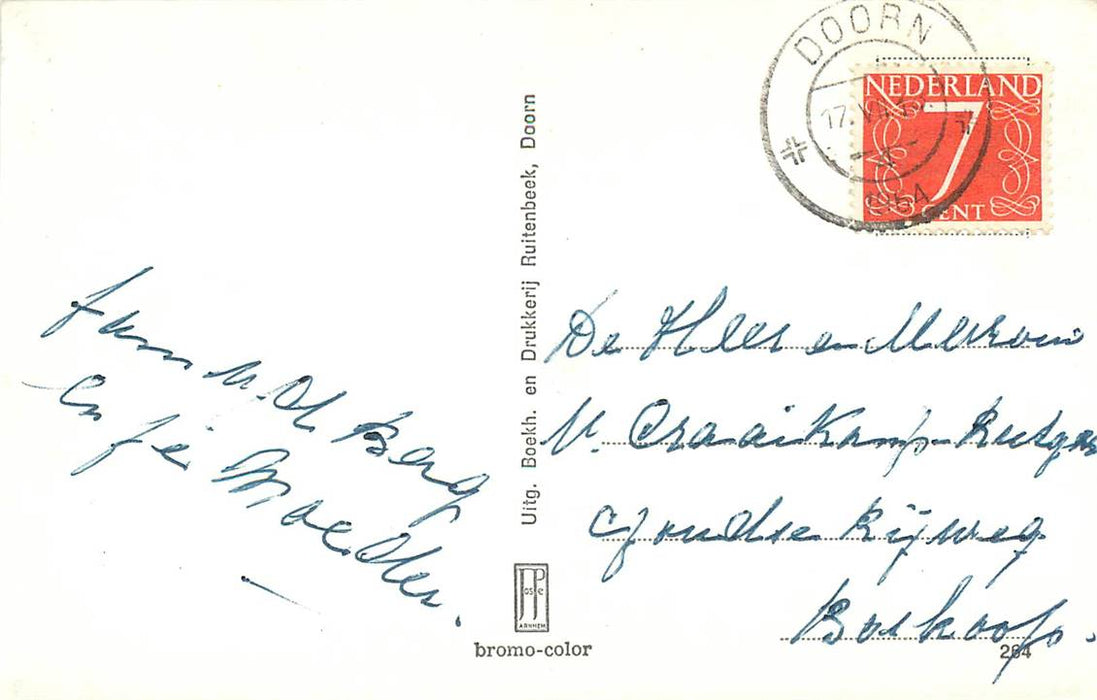 DOORN
17.VII
1964
NEDERLAND
7
CENT
fam v. d. Berg
en je Moeder.
Uitg. Boekh. en Drukkerij Ruitenbeek, Doorn
JosPe
ARNHEM
bromo-color
De Heer en Mevrouw
v. Craaikamp-Rutgers
Goudse Rijweg
Boskoop.
264